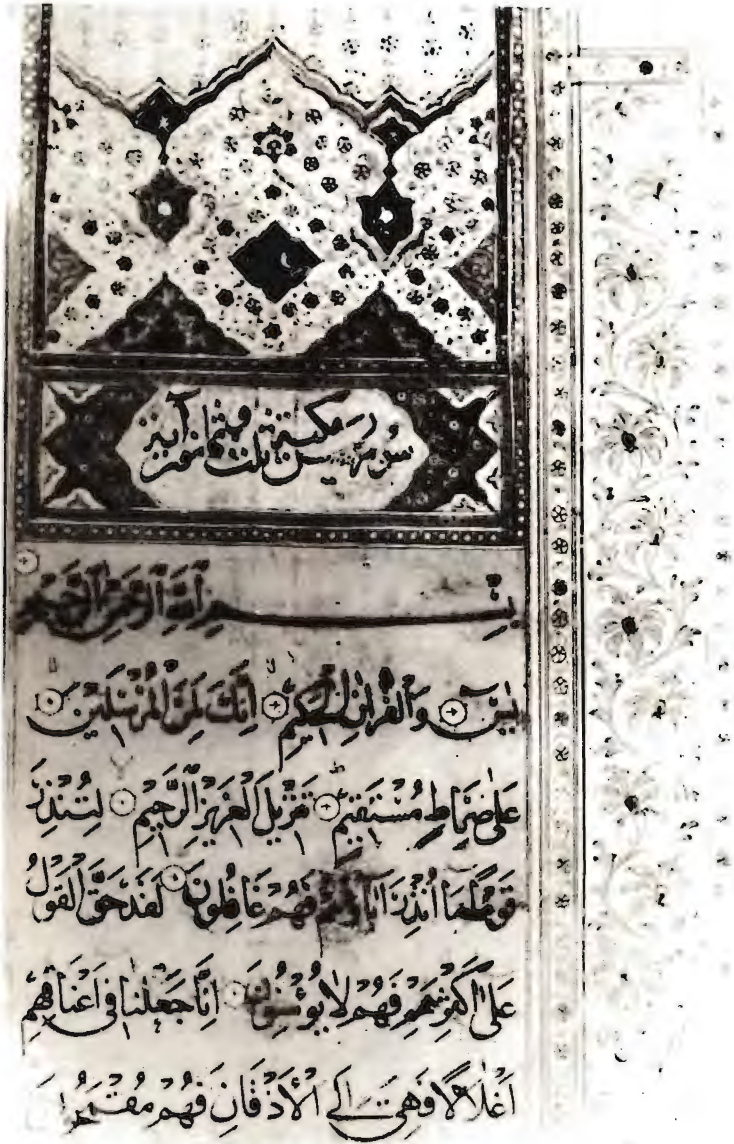 سورة يس مكية ثلث وثمانون آية
بِسْمِ اللَّهِ الرَّحْمَٰنِ الرَّحِيمِ
يٰسٓ وَالْقُرْاٰنِ الْحَكِيمِ اِنَّكَ لَمِنَ الْمُرْسَلِينَ
عَلٰى صِرَاطٍ مُسْتَقِيمٍ تَنْزِيلَ الْعَزِيزِ الرَّحِيمِ لِتُنْذِرَ
قَوْمًا مَا اُنْذِرَ اٰبَاؤُهُمْ فَهُمْ غَافِلُونَ لَقَدْ حَقَّ الْقَوْلُ
عَلٰى اَكْثَرِهِمْ فَهُمْ لَا يُؤْمِنُونَ اِنَّا جَعَلْنَا فِى اَعْنَاقِهِمْ
اَغْلَالًا فَهِىَ اِلَى الْاَذْقَانِ فَهُمْ مُقْمَحُونَ